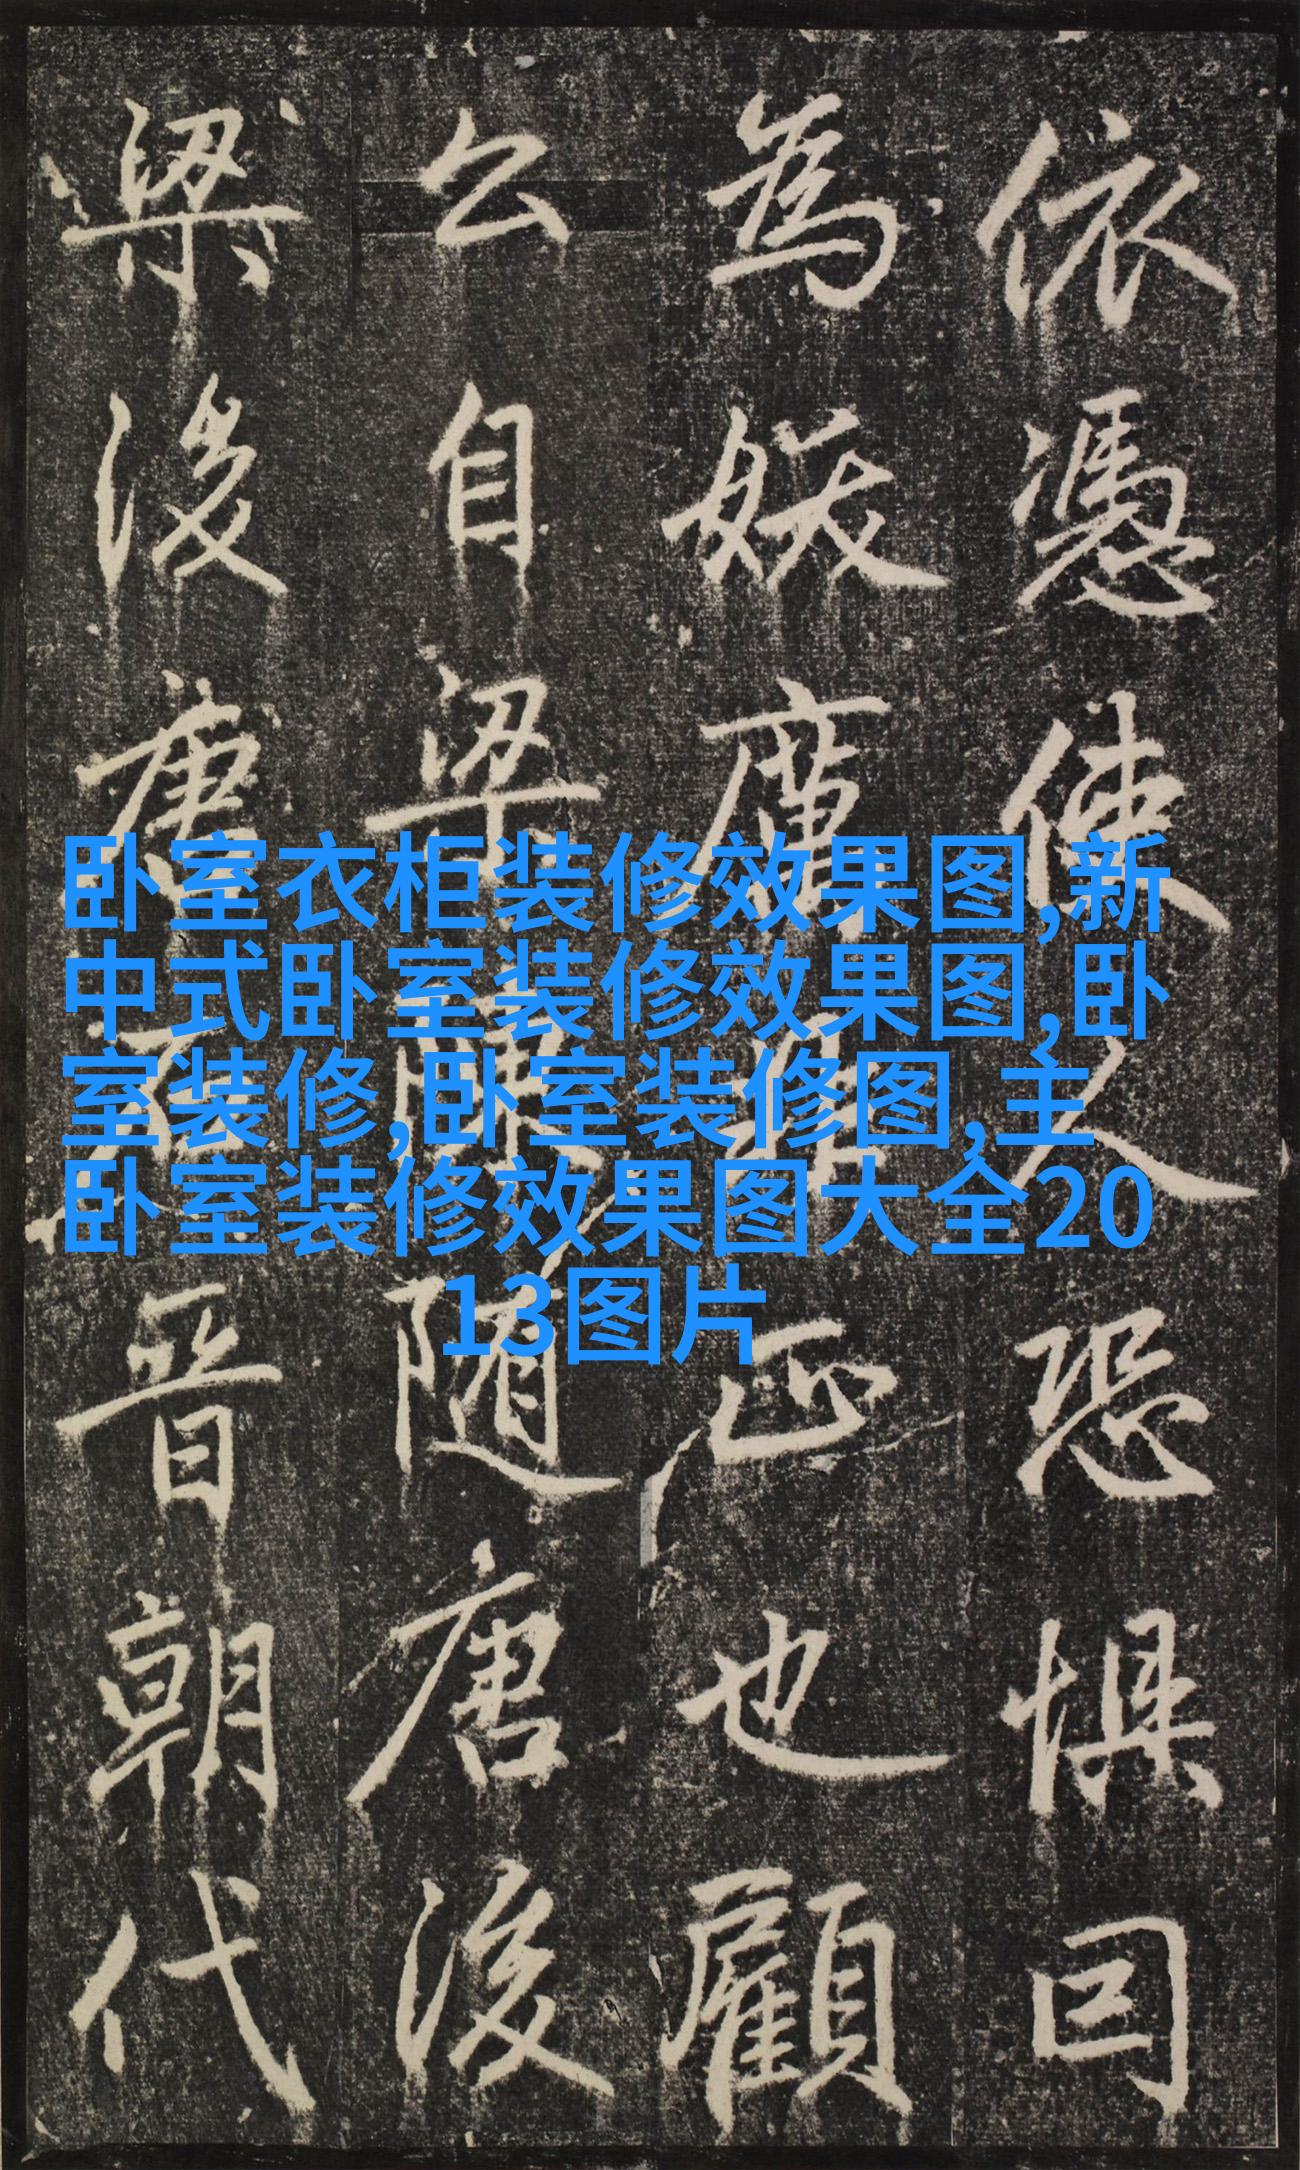 依憑使人恐懼
為妖正也顧
公自梁陳随唐後
梁後唐石晉朝代
卧室衣柜装修效果图,新
中式卧室装修效果图,卧
室装修,卧室装修图,主
卧室装修效果图大全20
13图片